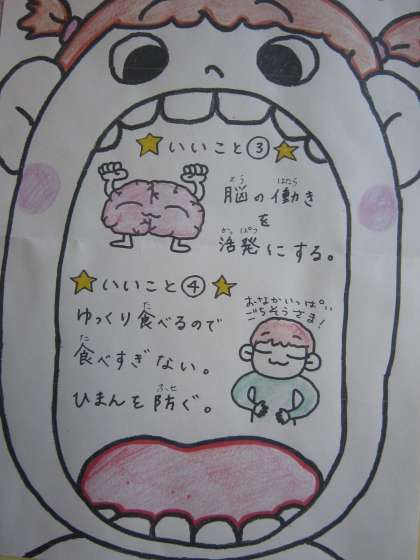 いいこと③
脳の働き
のう
はたら
を
活発にする。
かっぱつ
いいこと④
ゆっくり食べるので
た
食べすぎない。
た
ひまんを防ぐ。
ふせ
おなかいっぱい
ごちそうさま！